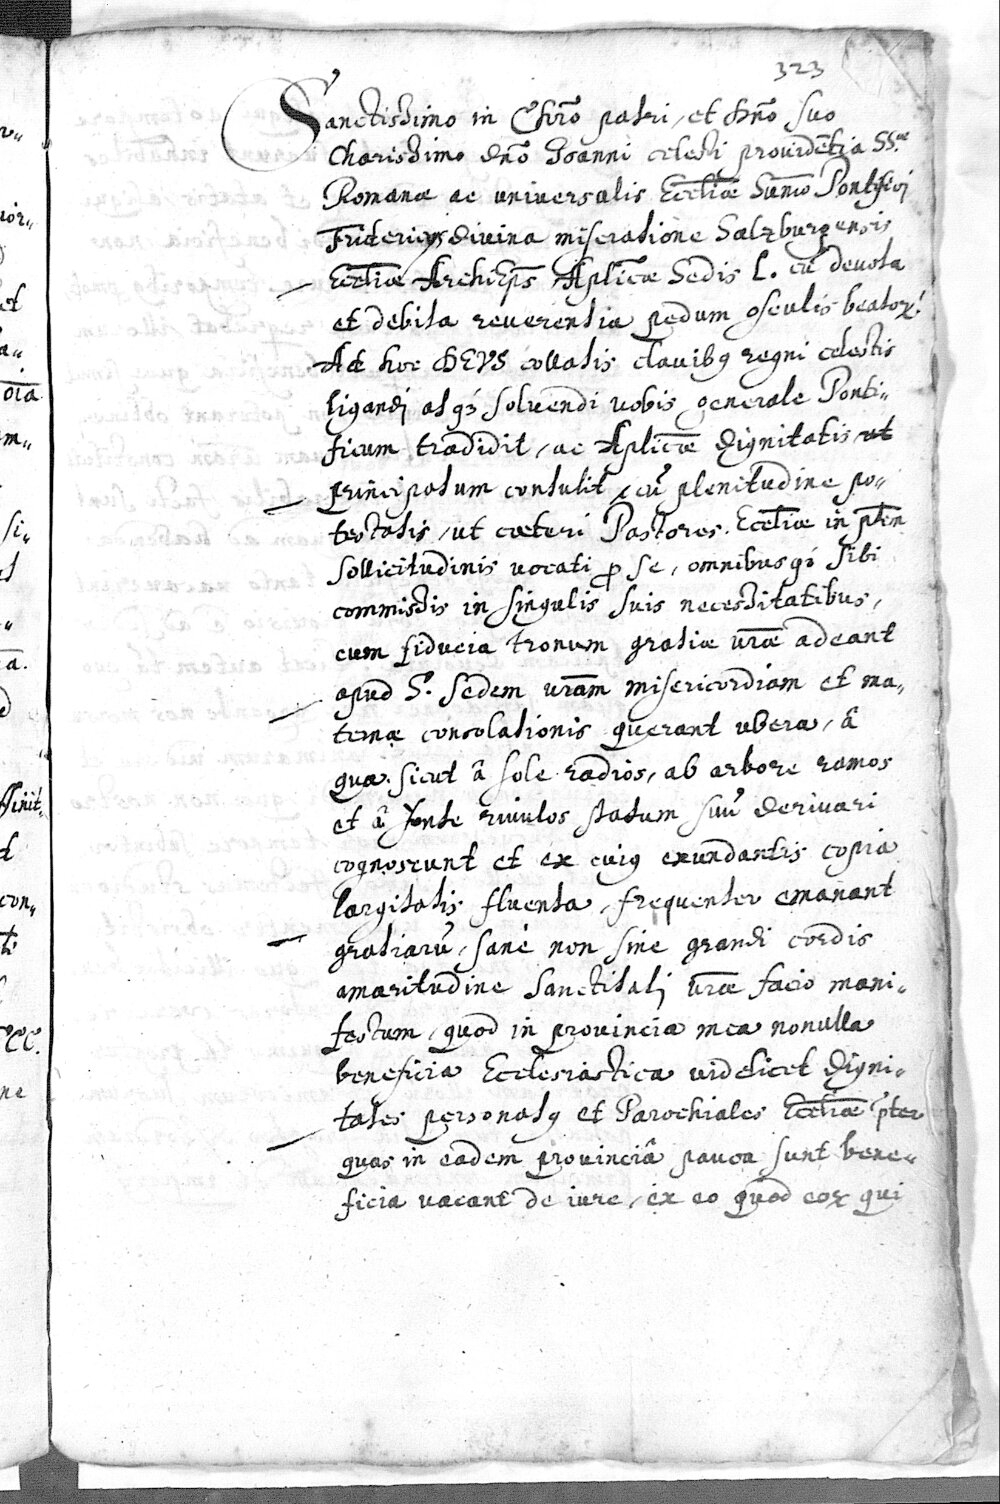 323
Sanctissimo in Chr̃o patri, et Dn̄o suo
Charissimo dn̄o Joanni celesti providẽtia SS.ᵃᵉ
Romanæ ac universalis Eccl̃iæ Sum̄o Pontifici
Fridericus divina miseratione Salzburgensis
Eccl̃iæ Archiep̃s Ap̃licæ Sedis L. cũ devota
et debita reverentia pedum osculis beatoꝝ.
Ad hoc DEVS collatis clavibꝯ regni celestis
ligandi atqꝫ solvendi vobis generale Ponti-
ficum tradidit, ac Ap̃licæ dignitatis, ut
principatum contulit, cũ plenitudine po-
testatis, ut cæteri Pastores Eccl̃iæ in p̃tem
sollicitudinis vocati ꝓ se, omnibusqꝫ sibi
commissis in singulis suis necessitatibus,
cum fiducia tronum gratiæ vr̃æ adeant
apud S. Sedem vr̃am misericordiam et ma-
ternæ consolationis querant ubera, â
qua. sicut â sole radios, ab arbore ramos
et â fonte rivulos statum suũ derivari
cognoscunt et ex cuiꝯ exundantis copia
largitatis fluenta, frequenter emanant
gratiarũ, sanè non sine grandi cordis
amaritudine Sanctitati vr̃æ facio mani-
festum, quod in provincia mea nonulla
beneficia Ecclesiastica videlicet digni-
tates personatꝯ et Parochiales Eccl̃iæ p̃ter
quas in eadem provinciâ pauca sunt bene-
ficia vacant de iure, ex eo quod eoꝝ qui